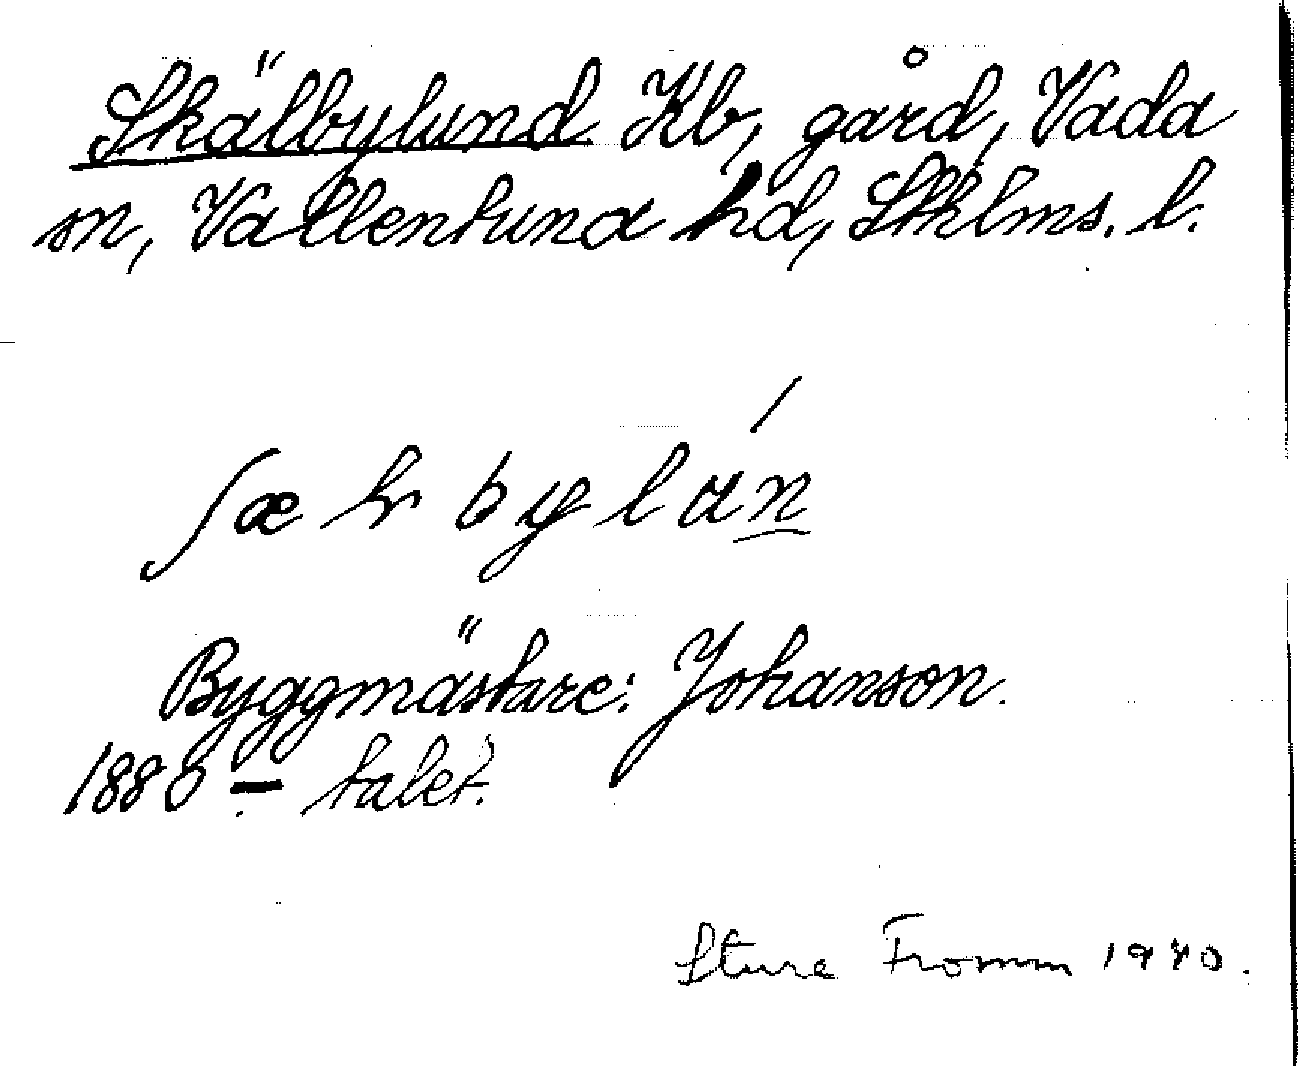 Skälbylund Kb, gård, Vada
sn, Vallentuna hd, Sthlms. l.
ʃæ lr by l u n
Byggmästare: Johanson.
1880 - talet.
Sture Fromm 1940.